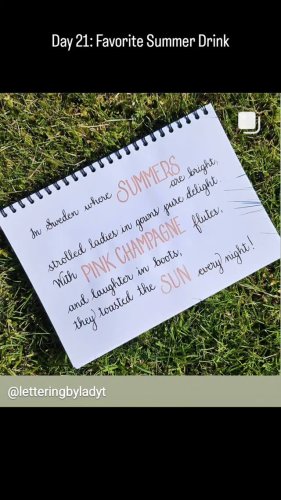 Day 21: Favorite Summer Drink
In Sweden where SUMMERS are bright,
strolled ladies in gowns pure delight
With PINK CHAMPAGNE flutes,
and laughter in boots,
they toasted the SUN every night!
@letteringbyladyt